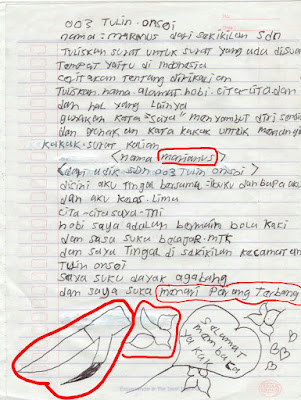 003 Tulin.onsoi
nama = marianus dari sekikilan SDN
Tuliskan surat untuk surat yang ada disua
Tempat yaitu di Indonesia
ceritakan tentang dirikalian
Tuliskan.nama.alamat hobi.cita-cita dan
dan hal yang lainya
gunakan kata "saya" menyambut diri sendir
dan gunakan kata kakak untuk memangi
kakak.surat kalian
<nama marianus>
<dari adik sdn.003 Tulin onsoi
disini aku Tingal bersama = ibuku dan bapa aku
dan aku kelas.Lima
cita-cita saya=TNI
hobi saya adalah bermain bola kaki
dan sasa suka belagar.MTK
dan saya Tingal di sekikilan kecamatan
Tulin onsoi
saya suku dayak agabang
dan saya suka menari Parang Terbang
selamat
membaca
ya kak